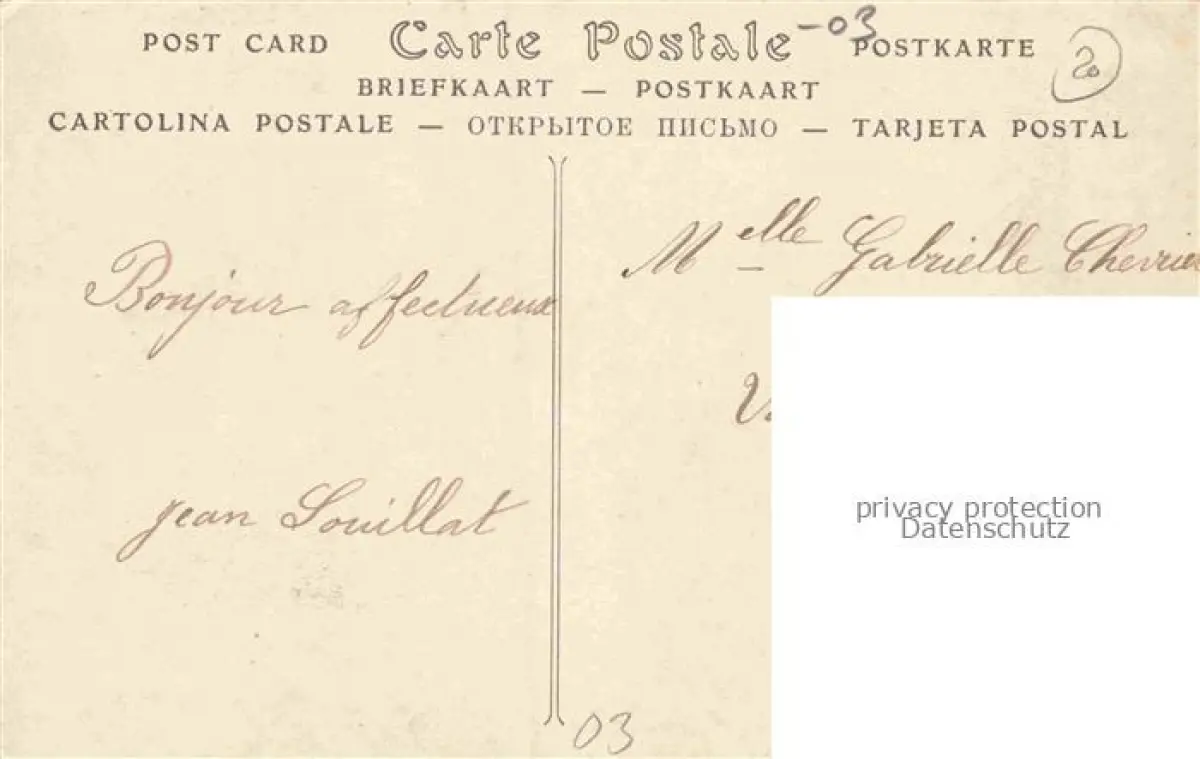 POST CARD Carte Postale -03 POSTKARTE 20
BRIEFKAART — POSTKAART
CARTOLINA POSTALE — ОТКРЫТОЕ ПИСЬМО — TARJETA POSTAL
Bonjour affectueux
jean Souillat
Melle Gabrielle Chevrier
privacy protection
Datenschutz
03